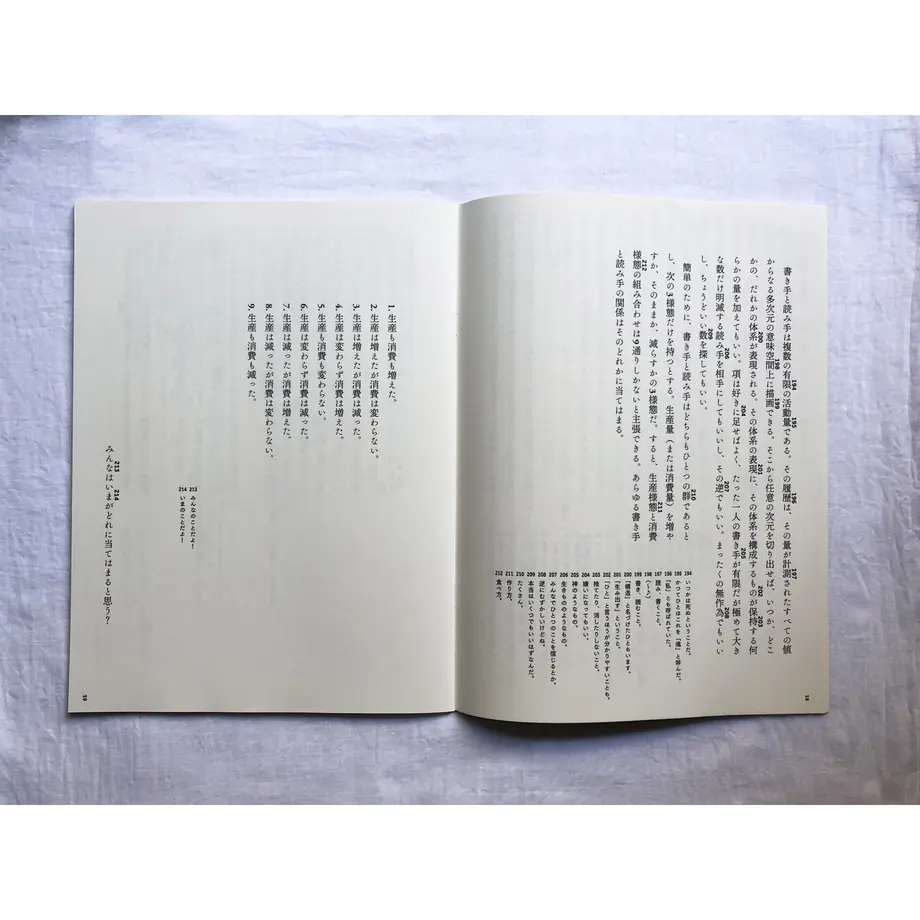 194 195 196 197
書き手と読み手は複数の有限の活動量である。その履歴は、その量が計測されたすべての値
198 199
からなる多次元の意味空間上に描画できる。そこから任意の次元を切り出せば、いつか、どこ
200 201 202 203
かの、だれかの体系が表現される。その体系の表現に、その体系を構成するものが保持する何
204 205
らかの量を加えてもいい。項は好きに足せばよく、たった一人の書き手が有限だが極めて大き
206 207 208
な数だけ明滅する読み手を相手にしてもいいし、その逆でもいい。まったくの無作為でもいい
209
し、ちょうどいい数を探してもいい。
210
簡単のために、書き手と読み手はどちらもひとつの群であると
し、次の3様態だけを持つとする。生産量（または消費量）を増や
211
すか、そのままか、減らすかの3様態だ。すると、生産様態と消費
212
様態の組み合わせは9通りしかないと主張できる。あらゆる書き手
と読み手の関係はそのどれかに当てはまる。
194 いつかは死ぬということだ。
195 かつてひとはこれを「魂」と呼んだ。
196 「私」とも呼ばれていた。
197 読み、書くこと。
198 （〜♪）
199 書き、読むこと。
200 「構造」と名づけたひともいます。
201 「生み出す」ということ。
202 「ひと」と言うほうが分かりやすいことも。
203 捨てたり、消したりしないこと。
204 嫌いになってもいい。
205 神のようなもの。
206 生きもののようなもの。
207 みんなでひとつのことを信じるとか。
208 逆にむずかしいけどね。
209 本当はいくつでもいいはずなんだ。
210 たくさん。
211 作り方。
212 食べ方。
18
1. 生産も消費も増えた。
2. 生産は増えたが消費は変わらない。
3. 生産は増えたが消費は減った。
4. 生産は変わらず消費は増えた。
5. 生産も消費も変わらない。
6. 生産は変わらず消費は減った。
7. 生産は減ったが消費は増えた。
8. 生産は減ったが消費は変わらない。
9. 生産も消費も減った。
213 みんなのことだよ！
214 いまのことだよ！
213 214
みんなはいまがどれに当てはまると思う？
19